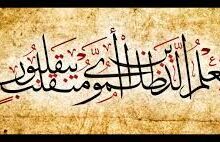 يعلم الذين ظلموا أي منقلب ينقلبون